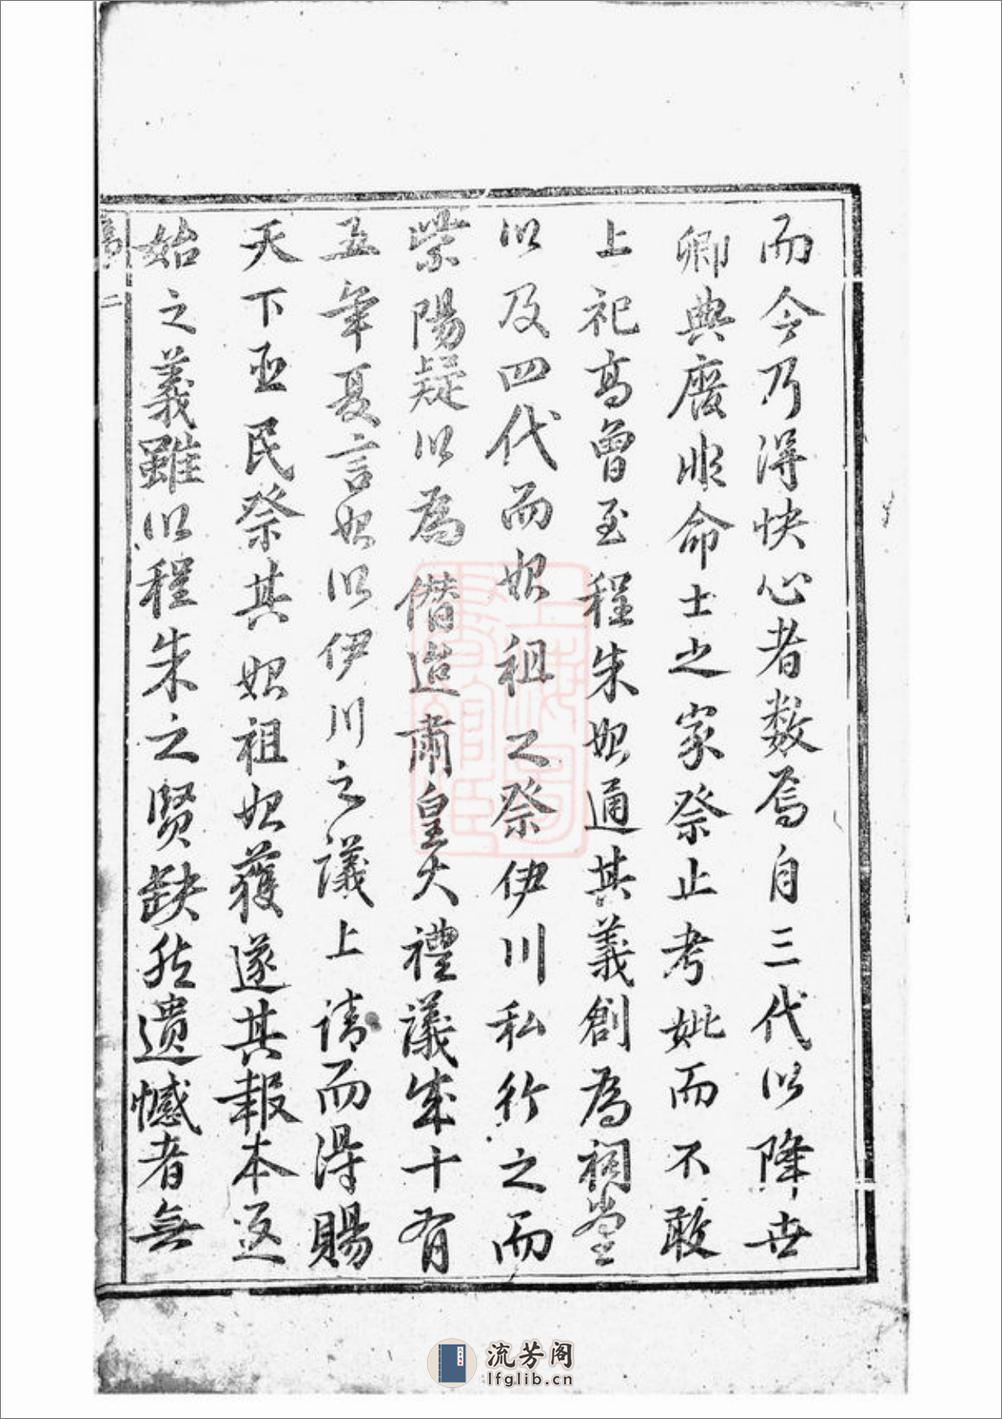 而今乃得快心者數焉自三代以降世
卿典廢非命士之家祭止考妣而不敢
上祀高曾至程朱始通其義創為祠堂
以及四代而始祖之祭伊川私行之而
紫陽疑以為僭迨肅皇大禮議成十有
五年夏言始以伊川之議上請而得賜
天下臣民祭其始祖始獲遂其報本返
始之義雖以程朱之賢缺然遺憾者無
二
流芳阁
lfglib.cn